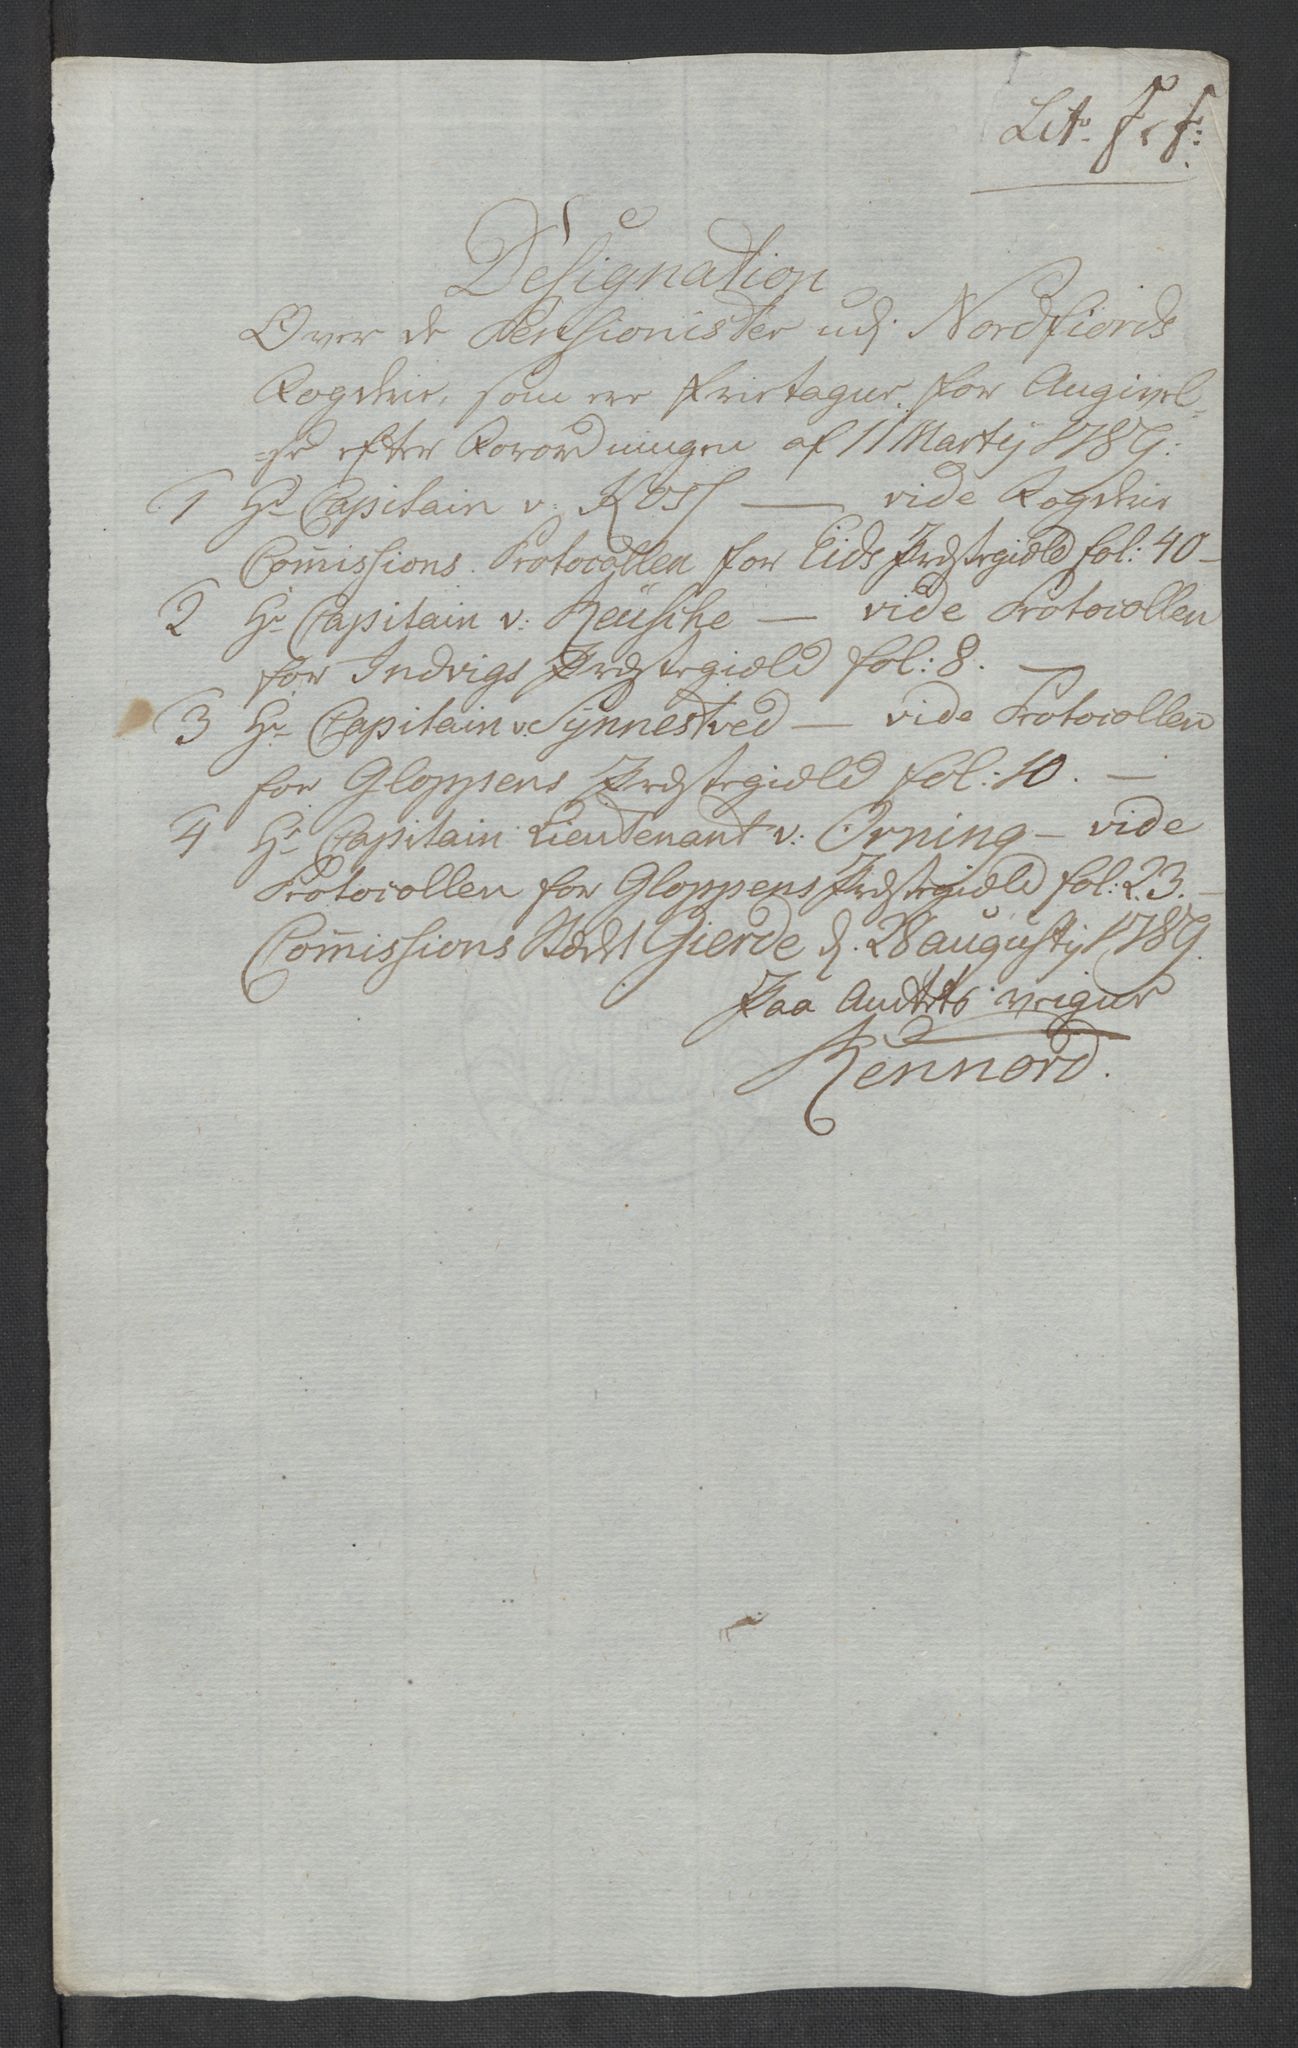 Litr. F. f:
Designation
Over de Pensionister udj Nordfiords
Fogderie, som ere frietagne for Angivel-
-se efter Forordningen af 11 Martij 1789:
1 Hr Capitain v: Koss — vide Fogderie
Com̄issions Protocollen for Eids Præstegield fol: 40 -
2 Hr Capitain v: Reüsche — vide Protocollen
for Indvigs Præstegield fol: 8. —
3 Hr Capitain v: Synnestved — vide Protocollen
for Gloppens Præstegield fol: 10. —
4 Hr Capitain Lieutenant v: Orning — vide
Protocollen for Gloppens Præstegield fol: 23. -
Com̄issions Stædet Gierde d. 28 augustij 1789.
Paa Amtets veigne
Rennord.